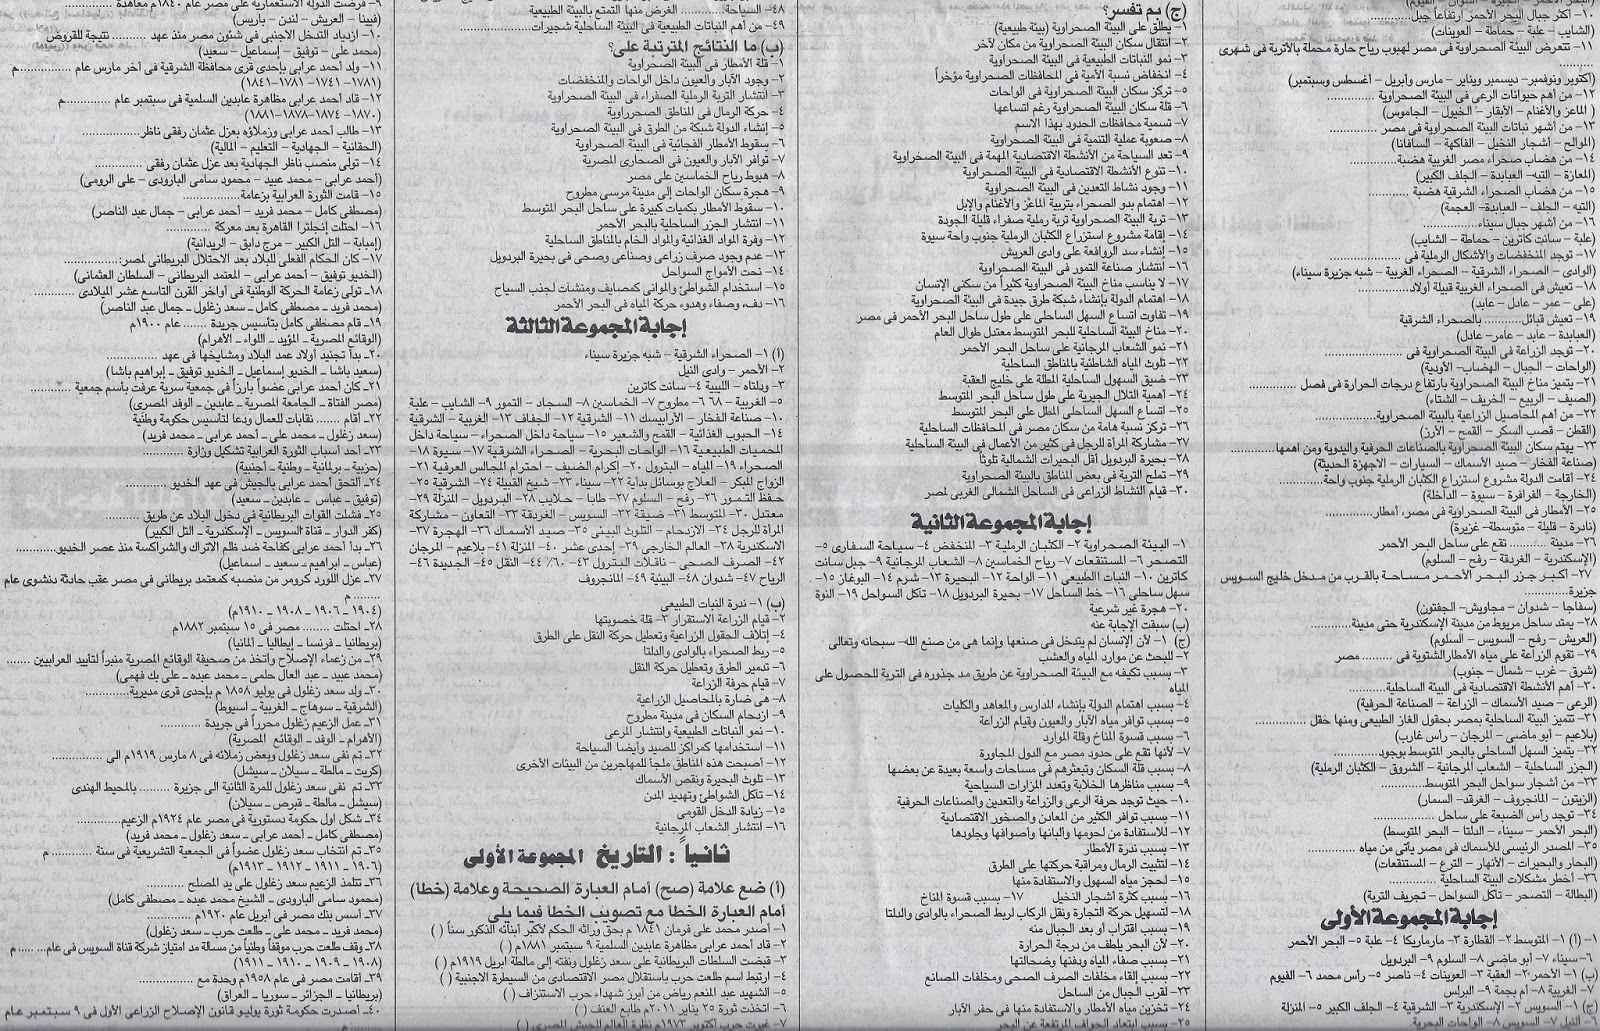 ١٠- أكثر جبال البحر الأحمر ارتفاعاً جبل............
(الشايب - علبة - حماطة - العوينات)
١١- تتعرض البيئة الصحراوية فى مصر لهبوب رياح حارة محملة بالأتربة فى شهرى
............
(أكتوبر ونوفمبر- ديسمبر ويناير - مارس وأبريل - أغسطس وسبتمبر)
١٢- من أهم حيوانات الرعى فى البيئة الصحراوية ............
( الماعز والأغنام - الأبقار - الخيول - الجاموس)
١٣- من أشهر نباتات البيئة الصحراوية فى مصر ............
(الموالح - أشجار النخيل - الفاكهة - السافانا)
١٤- من هضاب صحراء مصر الغربية هضبة............
(المعازة - التيه- العبابدة - الجلف الكبير)
١٥- من هضاب الصحراء الشرقية هضبة ............
(التيه - الجلف - العبابدة- العجمة)
١٦- من أشهر جبال سيناء............
(علبة - سانت كاترين - حماطة - الشايب)
١٧- توجد المنخفضات والأشكال الرملية فى ............
(الوادى - الصحراء الشرقية - الصحراء الغربية - شبه جزيرة سيناء)
١٨- تعيش فى الصحراء الغربية قبيلة أولاد............
(على - عمر - عادل - عابد)
١٩- تعيش قبائل.......... بالصحراء الشرقية
(العبابدة - عابد - عامر- عادل)
٢٠- توجد الزراعة فى البيئة الصحراوية فى ............
(الواحات - الجبال - الهضاب- الأودية)
٢١- يتميز مناخ البيئة الصحراوية بارتفاع درجات الحرارة فى فصل ............
(الصيف - الربيع - الخريف - الشتاء)
٢٢- من أهم المحاصيل الزراعية بالبيئة الصحراوية............
(القطن - قصب السكر - القمح - الأرز)
٢٣- يهتم سكان البيئة الصحراوية بالصناعات الحرفية واليدوية ومن أهمها............
(صناعة الفخار - صيد الأسماك - السيارات - الأجهزة الحديثة)
٢٤- أقامت الدولة مشروع استزراع الكثبان الرملية جنوب واحة............
(الخارجة - الفرافرة - سيوة - الداخلة)
٢٥- الأمطار فى البيئة الصحراوية فى مصر، أمطار............
(نادرة - قليلة - متوسطة- غزيرة)
٢٦- مدينة .......... تقع على ساحل البحر الأحمر
(الإسكندرية - الغردقة - رفح - السلوم)
٢٧- أكبر جزر البحر الأحمر مساحة بالقرب من مدخل خليج السويس
جزيرة............
(سفاجا - شدوان - مجاويش- الجفتون)
٢٨- يمتد ساحل مريوط من مدينة الإسكندرية حتى مدينة............
(العريش - رفح - السويس - السلوم)
٢٩- تقوم الزراعة على مياه الأمطار الشتوية فى .......... مصر
(شرق - غرب - شمال - جنوب)
٣٠- أهم الأنشطة الاقتصادية فى البيئة الساحلية............
(الرعى - صيد الأسماك - الزراعة - الصناعة الحرفية)
٣١- تتميز البيئة الساحلية بمصر بحقول الغاز الطبيعى ومنها حقل............
(بلاعيم - أبو ماضى - المرجان - رأس غارب)
٣٢- يتميز السهل الساحلى بالبحر المتوسط بوجود............
(الجزر الساحلية - الشعاب المرجانية - الشروق - الكثبان الرملية)
٣٣- من أشجار سواحل البحر المتوسط............
(الزيتون - المانجروف - الغرقد- السمار)
٣٤- توجد رأس الضبعة على ساحل ............
(البحر الأحمر - سيناء - الدلتا - البحر المتوسط)
٣٥- المصدر الرئيسى للأسماك فى مصر يأتى من مياه ............
(البحار والبحيرات - الأنهار - الترع - المستنقعات)
٣٦- أخطر مشكلات البيئة الساحلية ............
(البطالة - التصحر - تآكل السواحل - تجريف التربة)
إجابة المجموعة الأولى
١- (أ) ١- المتوسط ٢- القطارة ٣- مارماريكا ٤- علبة ٥- البحر الأحمر
٦- سيناء ٧- أبو ماضى ٨- السلوم ٩- البردويل
(ب) ١- الأحمر ٢- العقبة ٣- العوينات ٤- ناصر ٥- رأس محمد ٦- الفيوم
٧- الغربية ٨- أم بجمة ٩- البرلس
(ج) ١- السويس ٢- الإسكندرية ٣- الشرقية ٤- الجلف الكبير ٥- المنزلة
٦- النيل ٧- السويس ٨- الواحات البحرية
(ج) بم تفسر؟
١- يطلق على البيئة الصحراوية (بيئة طبيعية)
٢- انتقال سكان البيئة الصحراوية من مكان لآخر
٣- نمو النباتات الطبيعية فى البيئة الصحراوية
٤- انخفاض نسبة الأمية فى المحافظات الصحراوية مؤخراً
٥- تركز سكان البيئة الصحراوية فى الواحات
٦- قلة سكان البيئة الصحراوية رغم اتساعها
٧- تسمية محافظات الحدود بهذا الاسم
٨- صعوبة عملية التنمية فى البيئة الصحراوية
٩- تعد السياحة من الأنشطة الاقتصادية المهمة فى البيئة الصحراوية
١٠- تنوع الأنشطة الاقتصادية فى البيئة الصحراوية
١١- وجود نشاط التعدين فى البيئة الصحراوية
١٢- اهتمام بدو الصحراء بتربية الماعز والأغنام والإبل
١٣- تربة البيئة الصحراوية تربة رملية صفراء قليلة الجودة
١٤- إقامة مشروع استزراع الكثبان الرملية جنوب واحة سيوة
١٥- إنشاء سد الروافعة على وادى العريش
١٦- انتشار صناعة التمور فى البيئة الصحراوية
١٧- لا يناسب مناخ البيئة الصحراوية كثيراً من سكنى الإنسان
١٨- اهتمام الدولة بإنشاء شبكة طرق جيدة فى البيئة الصحراوية
١٩- تفاوت اتساع السهل الساحلى على طول ساحل البحر الأحمر فى مصر
٢٠- مناخ البيئة الساحلية للبحر المتوسط معتدل طوال العام
٢١- نمو الشعاب المرجانية على ساحل البحر الأحمر
٢٢- تلوث المياه الشاطئية بالمناطق الساحلية
٢٣- ضيق السهول الساحلية المطلة على خليج العقبة
٢٤- أهمية التلال الجيرية على طول ساحل البحر المتوسط
٢٥- اتساع السهل الساحلى المطل على البحر المتوسط
٢٦- تركز نسبة هامة من سكان مصر فى المحافظات الساحلية
٢٧- مشاركة المرأة للرجل فى كثير من الأعمال فى البيئة الساحلية
٢٨- بحيرة البردويل أقل البحيرات الشمالية تلوثاً
٢٩- تملح التربة فى بعض المناطق بالبيئة الصحراوية
٣٠- قيام النشاط الزراعى فى الساحل الشمالى الغربى لمصر
إجابة المجموعة الثانية
١- البيئة الصحراوية ٢- الكثبان الرملية ٣- المنخفض ٤- سياحة السفارى ٥-
التصحر ٦- المستنقعات ٧- رياح الخماسين ٨- الشعاب المرجانية ٩- جبل سانت
كاترين ١٠- النبات الطبيعى ١١- الواحة ١٢- البحيرة ١٣- شرم ١٤- البوغاز ١٥-
سهل ساحلى ١٦- خط الساحل ١٧- بحيرة البردويل ١٨- تآكل السواحل ١٩- النوة
٢٠- هجرة غير شرعية
(ب) سبقت الإجابة عنه
(ج) ١- لأن الإنسان لم يتدخل فى صنعها وإنما هى من صنع الله- سبحانه وتعالى
٢- للبحث عن موارد المياه والعشب
٣- بسبب تكيفه مع البيئة الصحراوية عن طريق مد جذوره فى التربة للحصول على
المياه
٤- بسبب اهتمام الدولة بإنشاء المدارس والمعاهد والكليات
٥- بسبب توافر مياه الآبار والعيون وقيام الزراعة
٦- بسبب قسوة المناخ وقلة الموارد
٧- لأنها تقع على حدود مصر مع الدول المجاورة
٨- بسبب قلة السكان وتبعثرهم فى مساحات واسعة بعيدة عن بعضها
٩- بسبب مناظرها الخلابة وتعدد المزارات السياحية
١٠- حيث توجد حرفة الرعى والزراعة والتعدين والصناعات الحرفية
١١- بسبب توافر الكثير من المعادن والصخور الاقتصادية
١٢- للاستفادة من لحومها وألبانها وأصوافها وجلودها
١٣- بسبب ندرة الأمطار
١٤- لتثبيت الرمال ومراقبة حركتها على الطرق
١٥- لحجز مياه السهول والاستفادة منها
١٦- بسبب كثرة أشجار النخيل ١٧- بسبب قسوة المناخ
١٨- لتسهيل حركة التجارة ونقل الركاب لربط الصحراء بالوادى والدلتا
١٩- بسبب اقتراب أو بعد الجبال منه
٢٠- لأن البحر يلطف من درجة الحرارة
٢١- بسبب صفاء المياه ودفئها وضحالتها
٢٢- بسبب إلقاء مخلفات الصرف الصحى ومخلفات المصانع
٢٣- لقرب الجبال من الساحل
٢٤- تخزين مياه الأمطار والاستفادة منها فى حفر الآبار
٢٥- بسبب ابتعاد الحواف المرتفعة عن البحر
٤٨- السياحة.......... الغرض منها التمتع بالبيئة الطبيعية
٤٩- من أهم النباتات الطبيعية فى البيئة الساحلية شجيرات............
(ب) ما النتائج المترتبة على؟
١- قلة الأمطار فى البيئة الصحراوية
٢- وجود الآبار والعيون داخل الواحات والمنخفضات
٣- انتشار التربة الرملية الصفراء فى البيئة الصحراوية
٤- حركة الرمال فى المناطق الصحراوية
٥- إنشاء الدولة شبكة من الطرق فى البيئة الصحراوية
٦- سقوط الأمطار الفجائية فى البيئة الصحراوية
٧- توافر الآبار والعيون فى الصحارى المصرية
٨- هبوط رياح الخماسين على مصر
٩- هجرة سكان الواحات إلى مدينة مرسى مطروح
١٠- سقوط الأمطار بكميات كبيرة على ساحل البحر المتوسط
١١- انتشار الجزر الساحلية بالبحر الأحمر
١٢- وفرة المواد الغذائية والمواد الخام بالمناطق الساحلية
١٣- عدم وجود صرف زراعى وصناعى وصحى فى بحيرة البردويل
١٤- نحت الأمواج السواحل
١٥- استخدام الشواطئ والموانى كمصايف ومنشآت لجذب السياح
١٦- دفء وصفاء وهدوء حركة المياه فى البحر الأحمر
إجابة المجموعة الثالثة
(أ) ١- الصحراء الشرقية - شبه جزيرة سيناء
٢- الأحمر - وادى النيل
٣- ويلتاه - الليبية ٤- سانت كاترين
٥- الغربية - ٦٨ ٦- مطروح ٧- الخماسين ٨- السجاد - التمور ٩- الشايب - علبة
١٠- صناعة الفخار - الأرابيسك ١١- الشرقية ١٢- الجفاف ١٣- الغربية - الشرقية
١٤- الحبوب الغذائية - القمح والشعير ١٥- سياحة داخل الصحراء - سياحة داخل
المحميات الطبيعية ١٦- الواحات البحرية - الصحراء الشرقية ١٧- سيوة ١٨-
الصحراء ١٩- المياه - البترول ٢٠- إكرام الضيف - احترام المجالس العرفية ٢١-
الزواج المبكر - العلاج بوسائل بداية ٢٢- سيناء ٢٣- شيخ القبيلة ٢٤- الشرقية ٢٥-
حفظ التمور ٢٦- رفح - السلوم ٢٧- طابا - حلايب ٢٨- البردويل - المنزلة ٢٩-
معتدل ٣٠- المتوسط ٣١- ضيقة ٣٢- السويس - الغردقة ٣٣- التعاون - مشاركة
المرأة للرجل ٣٤- الازدحام - التلوث البيئى ٣٥- صيد الأسماك ٣٦- الهجرة ٣٧-
الإسكندرية ٣٨- العالم الخارجى ٣٩- إحدى عشر ٤٠- المنزلة ٤١- بلاعيم - المرجان
٤٢- الصرف الصحى - ناقلات البترول ٤٣- ٦٠٪ ٤٤- النقل ٤٥- الجديدة ٤٦-
الرياح ٤٧- شدوان ٤٨- البيئة ٤٩- المانجروف
(ب) ١- ندرة النبات الطبيعى
٢- قيام الزراعة الاستقرار ٣- قلة خصوبتها
٤- إتلاف الحقول الزراعية وتعطيل حركة النقل على الطرق
٥- ربط الصحراء بالوادى والدلتا
٦- تدمير الطرق وتعطيل حركة النقل
٧- قيام حرفة الزراعة
٨- هى ضارة بالمحاصيل الزراعية
٩- ازدحام السكان فى مدينة مطروح
١٠- نمو النباتات الطبيعية وانتشار المرعى
١١- استخدامها كمراكز للصيد وأيضا السياحة
١٢- أصبحت هذه المناطق ملجأ للمهاجرين من البيئات الأخرى
١٣- تلوث البحيرة ونقص الأسماك
١٤- تآكل الشواطئ وتهديد المدن
١٥- زيادة الدخل القومى
١٦- انتشار الشعاب المرجانية
ثانياً : التاريخ المجموعة الأولى
(أ) ضع علامة (صح) أمام العبارة الصحيحة وعلامة (خطأ)
أمام العبارة الخطأ مع تصويب الخطأ فيما يلى
١- أصدر محمد على فرمان ١٨٤١ م بحق وراثه الحكم لأكبر أبنائه الذكور سناً ( )
٢- قاد أحمد عرابى مظاهرة عابدين السلمية ٩ سبتمبر ١٨٨١م ( )
٣- قبضت السلطات البريطانية على سعد زغلول ونفته إلى مالطة أبريل ١٩١٩م ( )
٤- ارتبط اسم طلعت حرب باستقلال مصر الاقتصادى من السيطرة الأجنبية ( )
٥- الشهيد عبد المنعم رياض من أبرز شهداء حرب الاستنزاف ( )
٦- اتخذت ثورة ٢٥ يناير ٢٠١١م طابع العنف ( )
٧- غيرت حرب أكتوبر ١٩٧٣م نظرة العالم للجيش المصرى ( )
٩- فرضت الدولة الاستعمارية على مصر عام ١٨٤٠م معاهدة............
(فيينا - العريش - لندن - باريس)
١٠- ازدياد التدخل الأجنبى فى شئون مصر منذ عهد .......... نتيجة للقروض
(محمد على - توفيق - إسماعيل - سعيد)
١١- ولد أحمد عرابى بإحدى قرى محافظة الشرقية فى أخر مارس عام ............م
(١٧٨١- ١٧٤١- ١٧٨١- ١٨٤١)
١٢- قاد أحمد عرابى مظاهرة عابدين السلمية فى سبتمبر عام ............م
(١٨٧٠- ١٨٧٤- ١٨٧٨- ١٨٨١)
١٣- طالب أحمد عرابى وزملاؤه بعزل عثمان رفقى ناظر............
(الحقانية - الجهادية - التعليم - المالية)
١٤- تولى منصب ناظر الجهادية بعد عزل عثمان رفقى ............
(أحمد عرابى - محمد عبيد - محمود سامى البارودى - على الرومى)
١٥- قامت الثورة العرابية بزعامة............
(مصطفى كامل - محمد فريد - أحمد عرابى - جمال عبد الناصر)
١٦- احتلت إنجلترا القاهرة بعد معركة ............
(إمبابة - التل الكبير - مرج دابق - الريدانية)
١٧- كان الحكام الفعلى للبلاد بعد الاحتلال البريطانى لمصر:............
(الخديو توفيق - أحمد عرابى - المعتمد البريطانى - السلطان العثمانى)
١٨- تولى زعامة الحركة الوطنية فى أواخر القرن التاسع عشر الميلادى............
(محمد فريد - مصطفى كامل - سعد زغلول - جمال عبد الناصر)
١٩- قام مصطفى كامل بتأسيس جريدة ....... عام ١٩٠٠م
(الوقائع المصرية - المؤيد - اللواء - الأهرام)
٢٠- بدأ تجنيد أولاد عمد البلاد ومشايخها فى عهد ............
(سعيد باشا - الخديو إسماعيل - الخديو توفيق - إبراهيم باشا)
٢١- كان أحمد عرابى عضواً بارزاً فى جمعية سرية عرفت باسم جمعية ............
(مصر الفتاة - الجامعة المصرية - عابدين - الوفد المصرى)
٢٢- أقام ....... نقابات للعمال ودعا لتأسيس حكومة وطنية
(سعد زغلول - محمد على - أحمد عرابى - محمد فريد)
٢٣- أحد أسباب الثورة العرابية تشكيل وزارة ............
(حزبية - برلمانية - وطنية - أجنبية)
٢٤- التحق أحمد عرابى بالجيش فى عهد الخديو ............
(توفيق - عباس - عابدين - سعيد)
٢٥- فشلت القوات البريطانية فى دخول البلاد عن طريق ............
(كفر الدوار - قناة السويس - الإسكندرية - التل الكبير)
٢٦- بدأ أحمد عرابى كفاحة ضد ظلم الأتراك والشراكسة منذ عصر الخديو............
(عباس - ابراهيم - سعيد - اسماعيل)
٢٧- عزل اللورد كرومر من منصبه كمعتمد بريطانى فى مصر عقب حادثة دنشوى عام
........ م
(١٩٠٤ - ١٩٠٦ - ١٩٠٨ - ١٩١٠م)
٢٨- احتلت ........ مصر فى ١٥ سبتمبر ١٨٨٢م
(بريطانيا - فرنسا - إيطاليا - المانيا)
٢٩- من زعماء الإصلاح واتخذ من صحيفة الوقائع المصرية منبراً لتأييد العرابيين .......
(محمد عبيد - عبد العال حلمى - محمد عبده - على بك فهمى)
٣٠- ولد سعد زغلول فى يوليو ١٨٥٨ م بإحدى قرى مديرية............
(الشرقية - سوهاج - الغربية - اسيوط)
٣١- عمل الزعيم زغلول محرراً فى جريدة ............
(الأهرام - الوفد - الوقائع المصرية)
٣٢- تم نفى سعد زغلول وبعض زملائه فى ٨ مارس ١٩١٩م الى ............
(كريت - مالطة - سيلان - سيشل)
٣٣- تم نفى سعد زغلول للمرة الثانية الى جزيرة ........ بالمحيط الهندى
(سيشل - مالطة - قبرص - سيلان)
٣٤- شكل اول حكومة دستورية فى مصر عام ١٩٢٤م الزعيم............
(مصطفى كامل - أحمد عرابى - سعد زغلول - محمد فريد)
٣٥- تم انتخاب سعد زغلول عضواً فى الجمعية التشريعية فى سنة ............ م
(١٩٠٦ - ١٩١١ - ١٩١٢ - ١٩١٣م)
٣٦- تتلمذ الزعيم سعد زغلول على يد المصلح ............
(محمود سامى البارودى - الشيخ محمد عبده - مصطفى كامل)
٣٧- أسس بنك مصر فى أبريل عام ١٩٢٠م ............
(محمد فريد - محمد على - طلعت حرب - سعد زغلول)
٣٨- وقف طلعت حرب موقفاً وطنياً من مسألة مد امتياز شركة قناة السويس فى عام.... م
(١٩٠٨ - ١٩٠٩ - ١٩١٠ - ١٩١١)
٣٩- أقامت مصر فى عام ١٩٥٨م وحدة مع ............
(بريطانيا - الجزائر - سوريا - العراق)
٤٠- اصدرت حكومة ثورة يوليو قانون الإصلاح الزراعى الأول فى ٩ سبتمبر عام
............ م